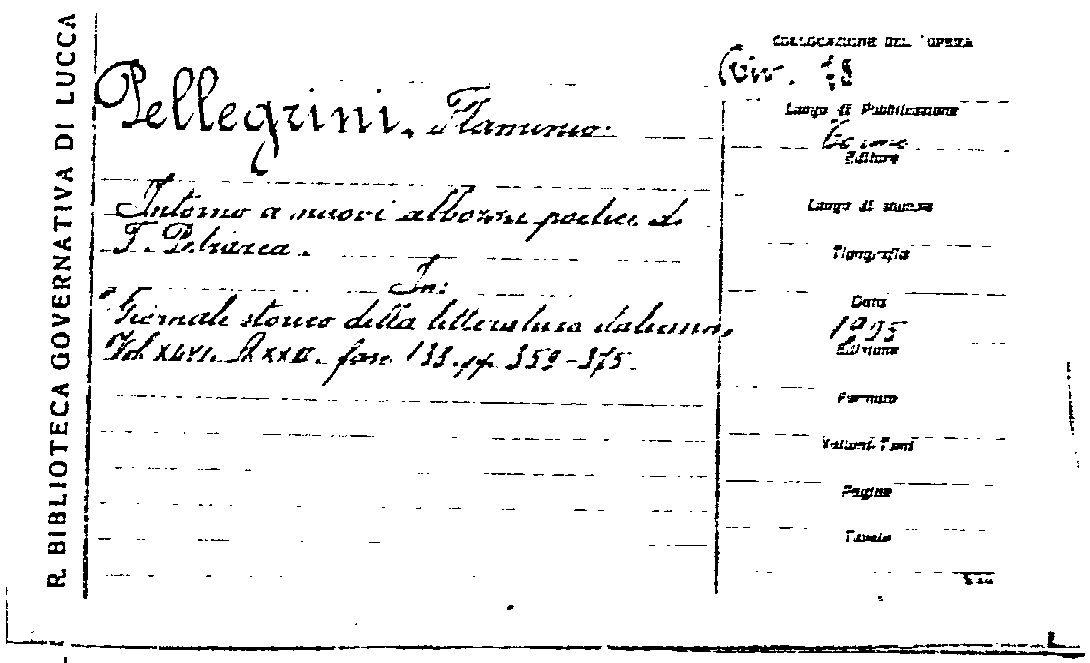 R. BIBLIOTECA GOVERNATIVA DI LUCCA
Pellegrini, Flaminio.
Intorno a nuovi abbozzi poetici di
F. Petrarca.
In:
"Giornale storico della letteratura italiana,
Vol. XLVI. fasc. 133. pp. 359-375.
COLLOCAZIONE DELL'OPERA
Luogo di Pubblicazione
Editore
Luogo di stampa
Tipografia
Data
Edizione
Formato
Volumi-Tomi
Pagine
Tavole